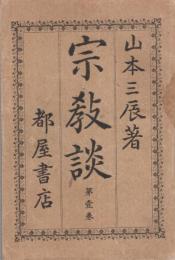 山本三辰著
宗教談
第壹巻
都屋書店